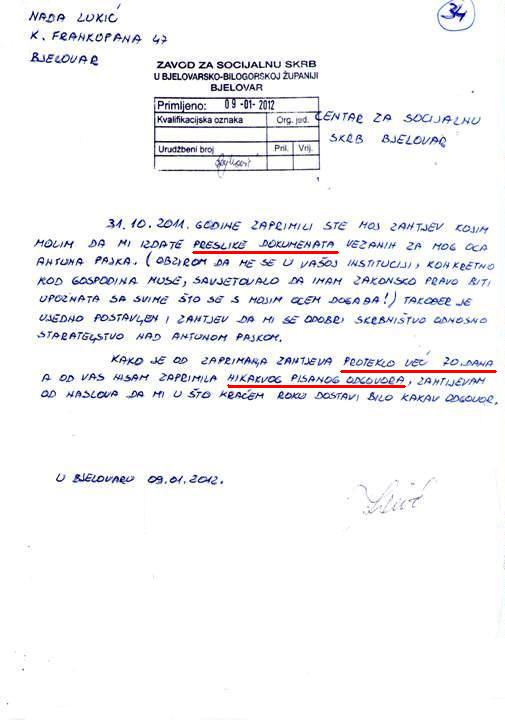 34
NADA LUKIĆ
K. FRANKOPANA 47
BJELOVAR
ZAVOD ZA SOCIJALNU SKRB
U BJELOVARSKO-BILOGORSKOJ ŽUPANIJI
BJELOVAR
Primljeno: 09-01-2012
Kvalifikacijska oznaka Org. jed.
Urudžbeni broj Pril. Vrij.
CENTAR ZA SOCIJALNU
SKRB BJELOVAR
31.10.2011. GODINE ZAPRIMILI STE MOJ ZAHTJEV KOJIM
MOLIM DA MI IZDATE PRESLIKE DOKUMENATA VEZANIH ZA MOG OCA
ANTUNA PAJKA. (OBZIROM DA ME SE U VAŠOJ INSTITUCIJI, KONKRETNO
KOD GOSPODINA MUSE, SAVJETOVALO DA IMAM ZAKONSKO PRAVO BITI
UPOZNATA SA SVIME ŠTO SE S MOJIM OCEM DOGAĐA!) TAKOĐER JE
UJEDNO POSTAVLJEN I ZAHTJEV DA MI SE ODOBRI SKRBNIŠTVO ODNOSNO
STARATELJSTVO NAD ANTUNOM PAJKOM.
KAKO JE OD ZAPRIMANJA ZAHTJEVA PROTEKLO VEĆ 70. DANA
A OD VAS NISAM ZAPRIMILA NIKAKVOG PISANOG ODGOVORA, ZAHTIJEVAM
OD NASLOVA DA MI U ŠTO KRAĆEM ROKU DOSTAVI BILO KAKAV ODGOVOR.
U BJELOVARU 09.01.2012.